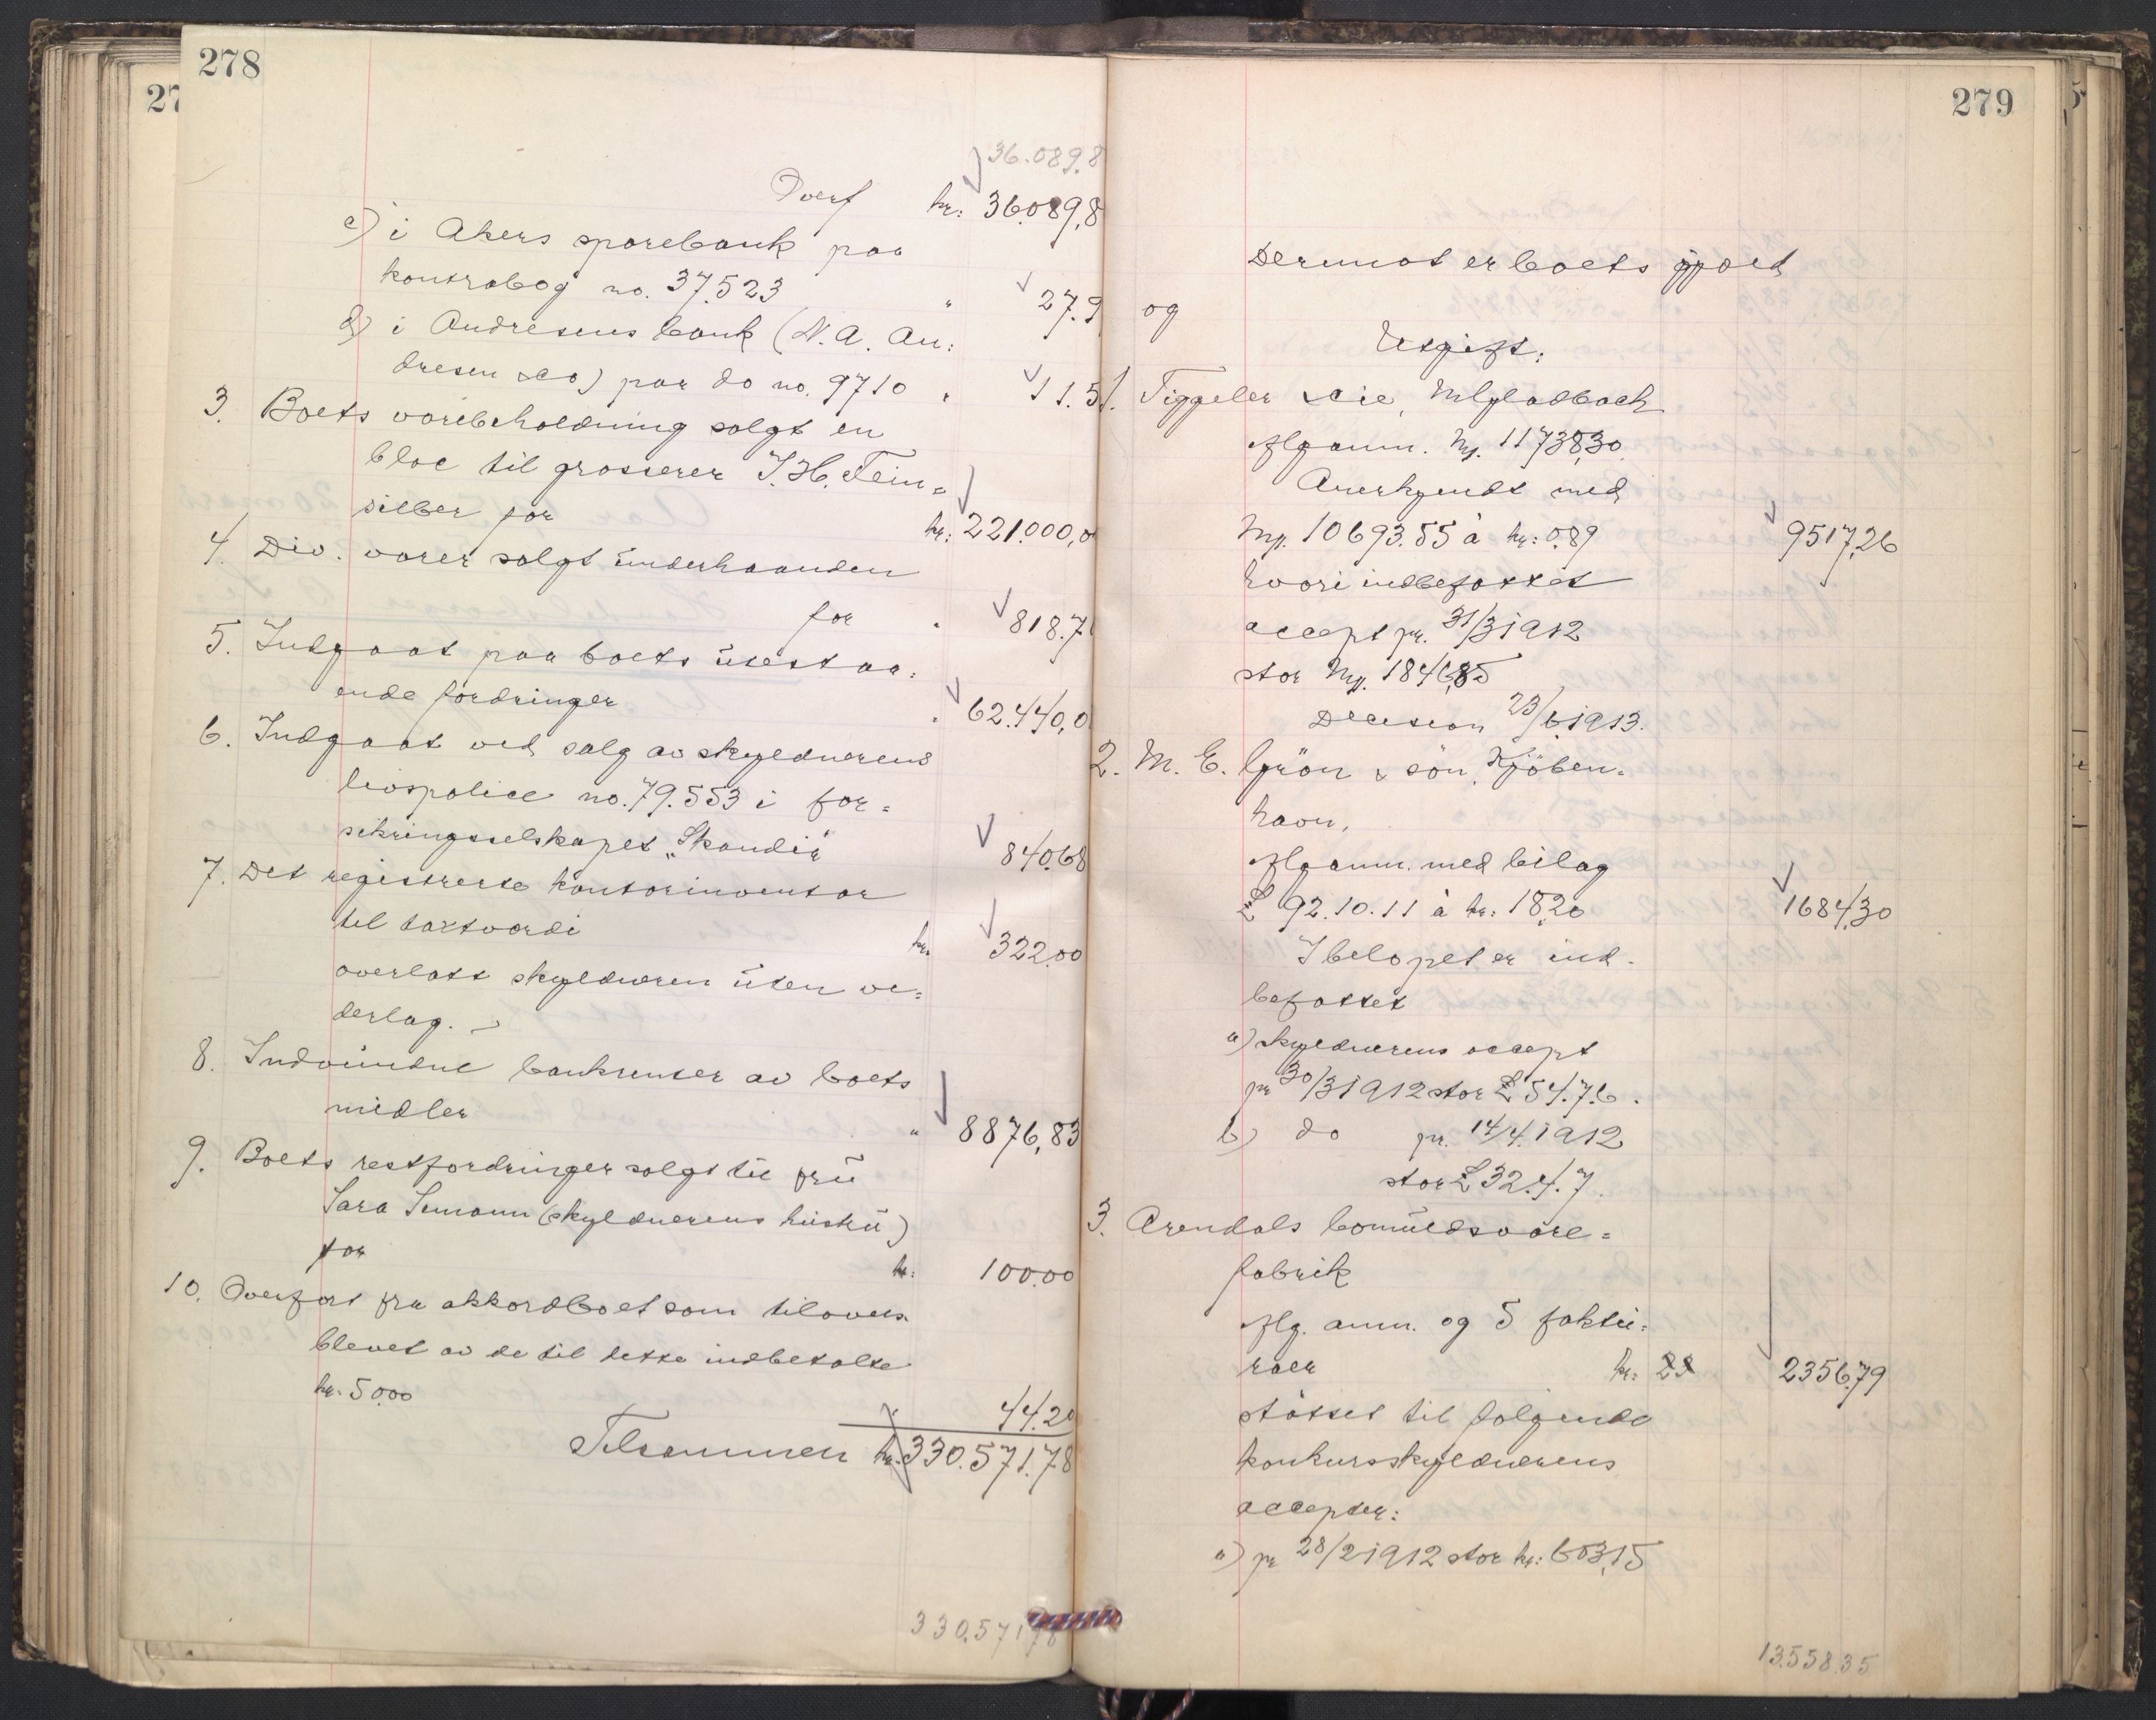 278
36.089.8
Overf kr: 36.089,8
c) i Akers sparebank paa
kontrabog no. 37.523 " 27.9
d) i Andresens bank (N. A. An:
dresen & Co) paa do no. 9710 " 11.5
3. Boets varebeholdning solgt en
bloc til grosserer J. H. Fein=
silber for kr: 221.000,0
4. Div. varer solgt underhaanden
for " 818.7
5. Indgaat paa boets utestaa:
ende fordringer " 62.440,0
6. Indgaat ved salg av skyldnerens
livspolice no. 79.553 i for=
sikringsselskapet „Skandia"
840.68
7. Det registrerte kontorinventar
til takstværdi kr. 322.00
overlatt skyldneren uten ve=
derlag.
8. Indvundne bankrenter av boets
midler " 8876,83
9. Boets restfordringer solgt til fru
Sara Semann (skyldnerens hustru)
for kr: 100.00
10. Overført fra akkordboet som tilovers
blevet av de til dette indbetalte
kr. 50.00 44.20
Tilsammen kr. 330.571.78
330.571.78
279
Dermot er boets gjæld
og
Utgift:
1. Tiggeler & Cie, M/gladbach
iflg anm. M. 11738,30
Anerkjendt med
M. 10693.55 à kr: 0.89 9517,26
hvori indbefattet
accept pr. 31/3 1912
stor M. 1846,85
Decision 23/6 1913.
2. M. E. Grön & Sön, Kjöben=
havn,
iflg anm. med bilag
£ 92.10.11 à kr: 18,20 1684,30
I belöpet er ind-
befattet
a) skyldnerens accept
pr 30/3 1912 stor £ 54.7.6.
b) do pr. 14/4. 1912
stor £ 32.4.7.
3. Arendals bomuldsvare=
fabrik
iflg. anm. og 5 faktu:
raer kr: 2356.79
støttet til følgende
konkursskyldnerens
accepter:
a) pr 28/2 1912 stor kr: 603,15
13.558.35